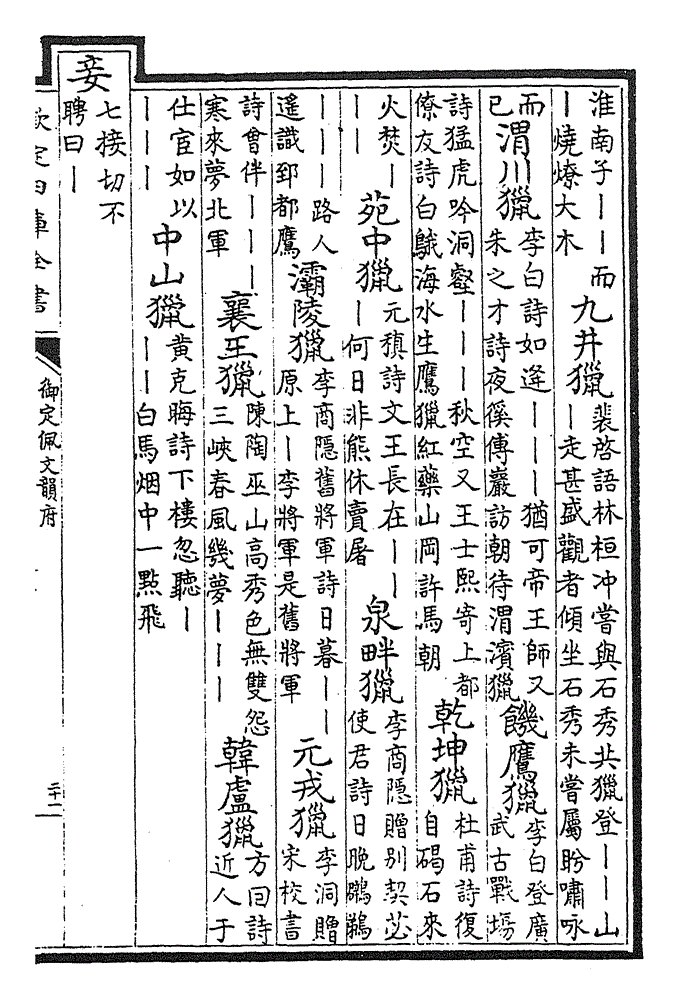 淮南子丨丨而
丨燒燎大木
九井獵
裴啓語林桓冲嘗與石秀共獵登丨丨山
丨走甚盛觀者傾坐石秀未嘗屬盻嘯咏
而
已
渭川獵
李白詩如逢丨丨丨猶可帝王師又
朱之才詩夜傒傅巖訪朝待渭濱獵
饑鷹獵
李白登廣
武古戰塲
詩猛虎吟洞壑丨丨丨秋空又王士熙寄上都
僚友詩白鵝海水生鷹獵紅藥山岡許馬朝
乾坤獵
杜甫詩復
自碣石來
火焚丨
丨丨
苑中獵
元稹詩文王長在丨丨
丨何日非熊休賣屠
泉畔獵
李商隱贈别契苾
使君詩日晚鸊鵜
丨丨丨路人
遙識郅都鷹
灞陵獵
李商隱舊將軍詩日暮丨丨
原上丨李將軍是舊將軍
元戎獵
李洞贈
宋校書
詩會伴丨丨丨
寒來夢北軍
襄王獵
陳陶巫山高秀色無雙怨
三峽春風幾夢丨丨丨
韓盧獵
方回詩
近人于
仕宦如以
丨丨丨
中山獵
黃克晦詩下樓忽聽丨
丨丨白馬烟中一點飛
妾
七接切不
聘曰丨
欽定四庫全書
御定佩文韻府
二十二